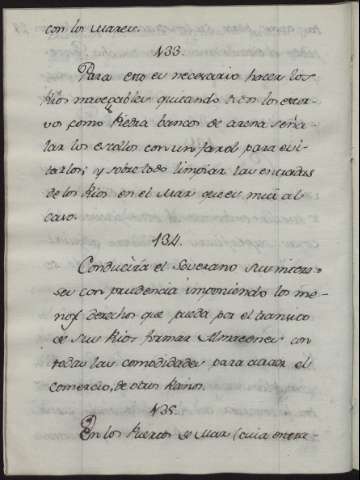 con los Mares.
133.
Para esto es necesario hacer los
Rios navegables quitando de en los estor-
vos como Piedra bancos de arena seña-
lar los escollos con un farol para evi-
tarlos; y sobre todo limpiar las entradas
de los Rios en el Mar que es mui al
caso.
134.
Conducirà el Soverano sus intere-
ses con prudencia imponiendo los me-
nos derechos que pueda por el transito
de sus Rios formar Almacenes con
todas las comodidades para atraer el
comercio, de otros Rainos.
135.
En los Puertos de Mar (cuia entra-